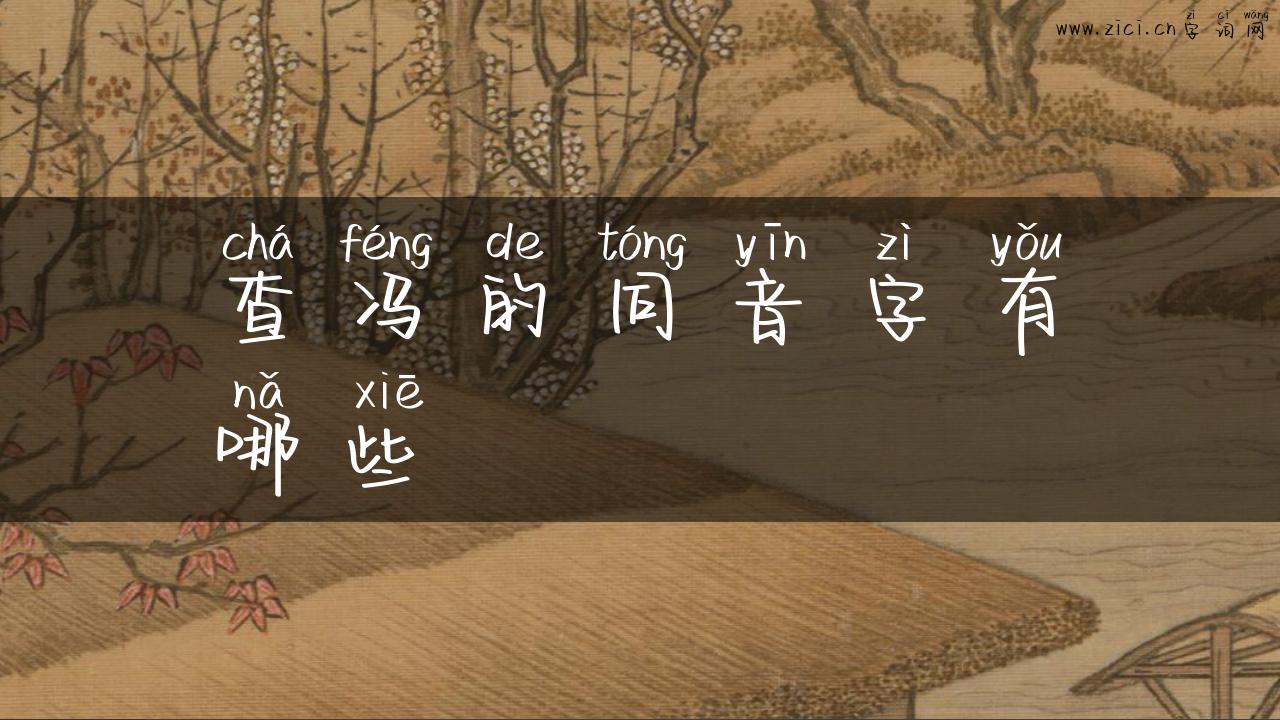 zì cí wǎng
www.zici.cn 字词网
chá féng de tóng yīn zì yǒu
查冯的同音字有
nǎ xiē
哪些